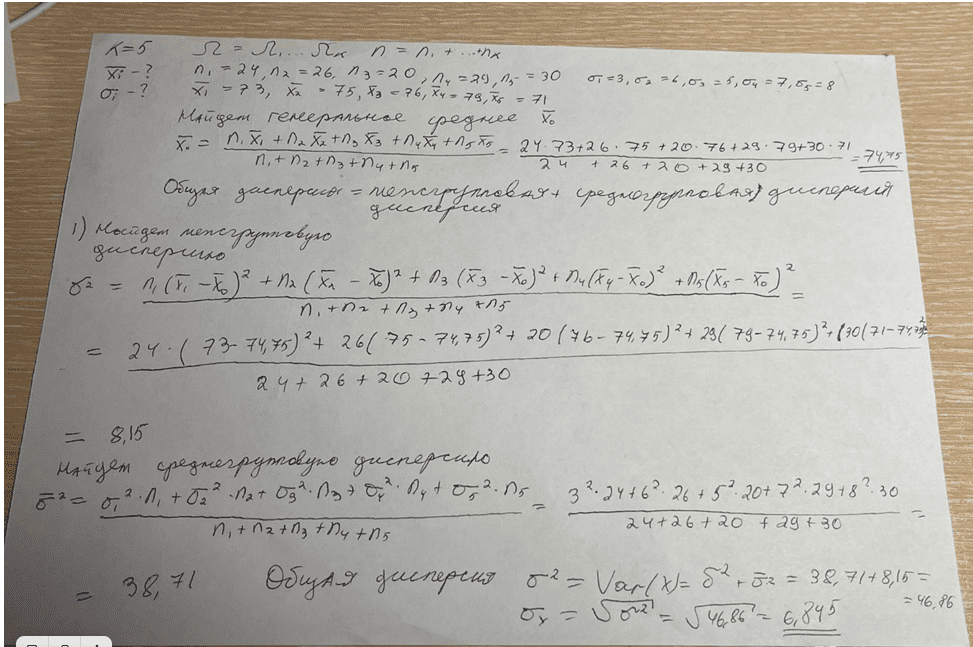 K=5 Ω = Ω₁...Ωₖ n = n₁ + ... + nₖ
x̄ᵢ - ? n₁ = 24, n₂ = 26, n₃ = 20, n₄ = 29, n₅ = 30 σ₁=3, σ₂=6, σ₃=5, σ₄=7, σ₅=8
σᵢ - ? x̄₁ = 73, x̄₂ = 75, x̄₃ = 76, x̄₄ = 79, x̄₅ = 71
Найдем генеральное среднее x̄₀
x̄₀ = (n₁x̄₁ + n₂x̄₂ + n₃x̄₃ + n₄x̄₄ + n₅x̄₅)/(n₁ + n₂ + n₃ + n₄ + n₅) = (24·73+26·75+20·76+29·79+30·71)/(24 + 26 + 20 + 29 + 30) = 74,75
Общая дисперсия = межгрупповая + среднегрупповая) дисперсия
дисперсия
1) Найдем межгрупповую
дисперсию
δ² = (n₁(x̄₁ - x̄₀)² + n₂(x̄₂ - x̄₀)² + n₃(x̄₃ - x̄₀)² + n₄(x̄₄ - x̄₀)² + n₅(x̄₅ - x̄₀)²)/(n₁ + n₂ + n₃ + n₄ + n₅) =
= (24·(73-74,75)² + 26(75-74,75)² + 20(76-74,75)² + 29(79-74,75)² + (30(71-74,75)²)/(24 + 26 + 20 + 29 + 30)
= 8,15
Найдем среднегрупповую дисперсию
σ̄² = (σ₁²·n₁ + σ₂²·n₂ + σ₃²·n₃ + σ₄²·n₄ + σ₅²·n₅)/(n₁ + n₂ + n₃ + n₄ + n₅) = (3²·24+6²·26+5²·20+7²·29+8²·30)/(24+26+20+29+30) =
= 38,71 Общая дисперсия σ² = Var(X) = δ² + σ̄² = 38,71+8,15 =
= 46,86
σₓ = √σ² = √46,86 = 6,845